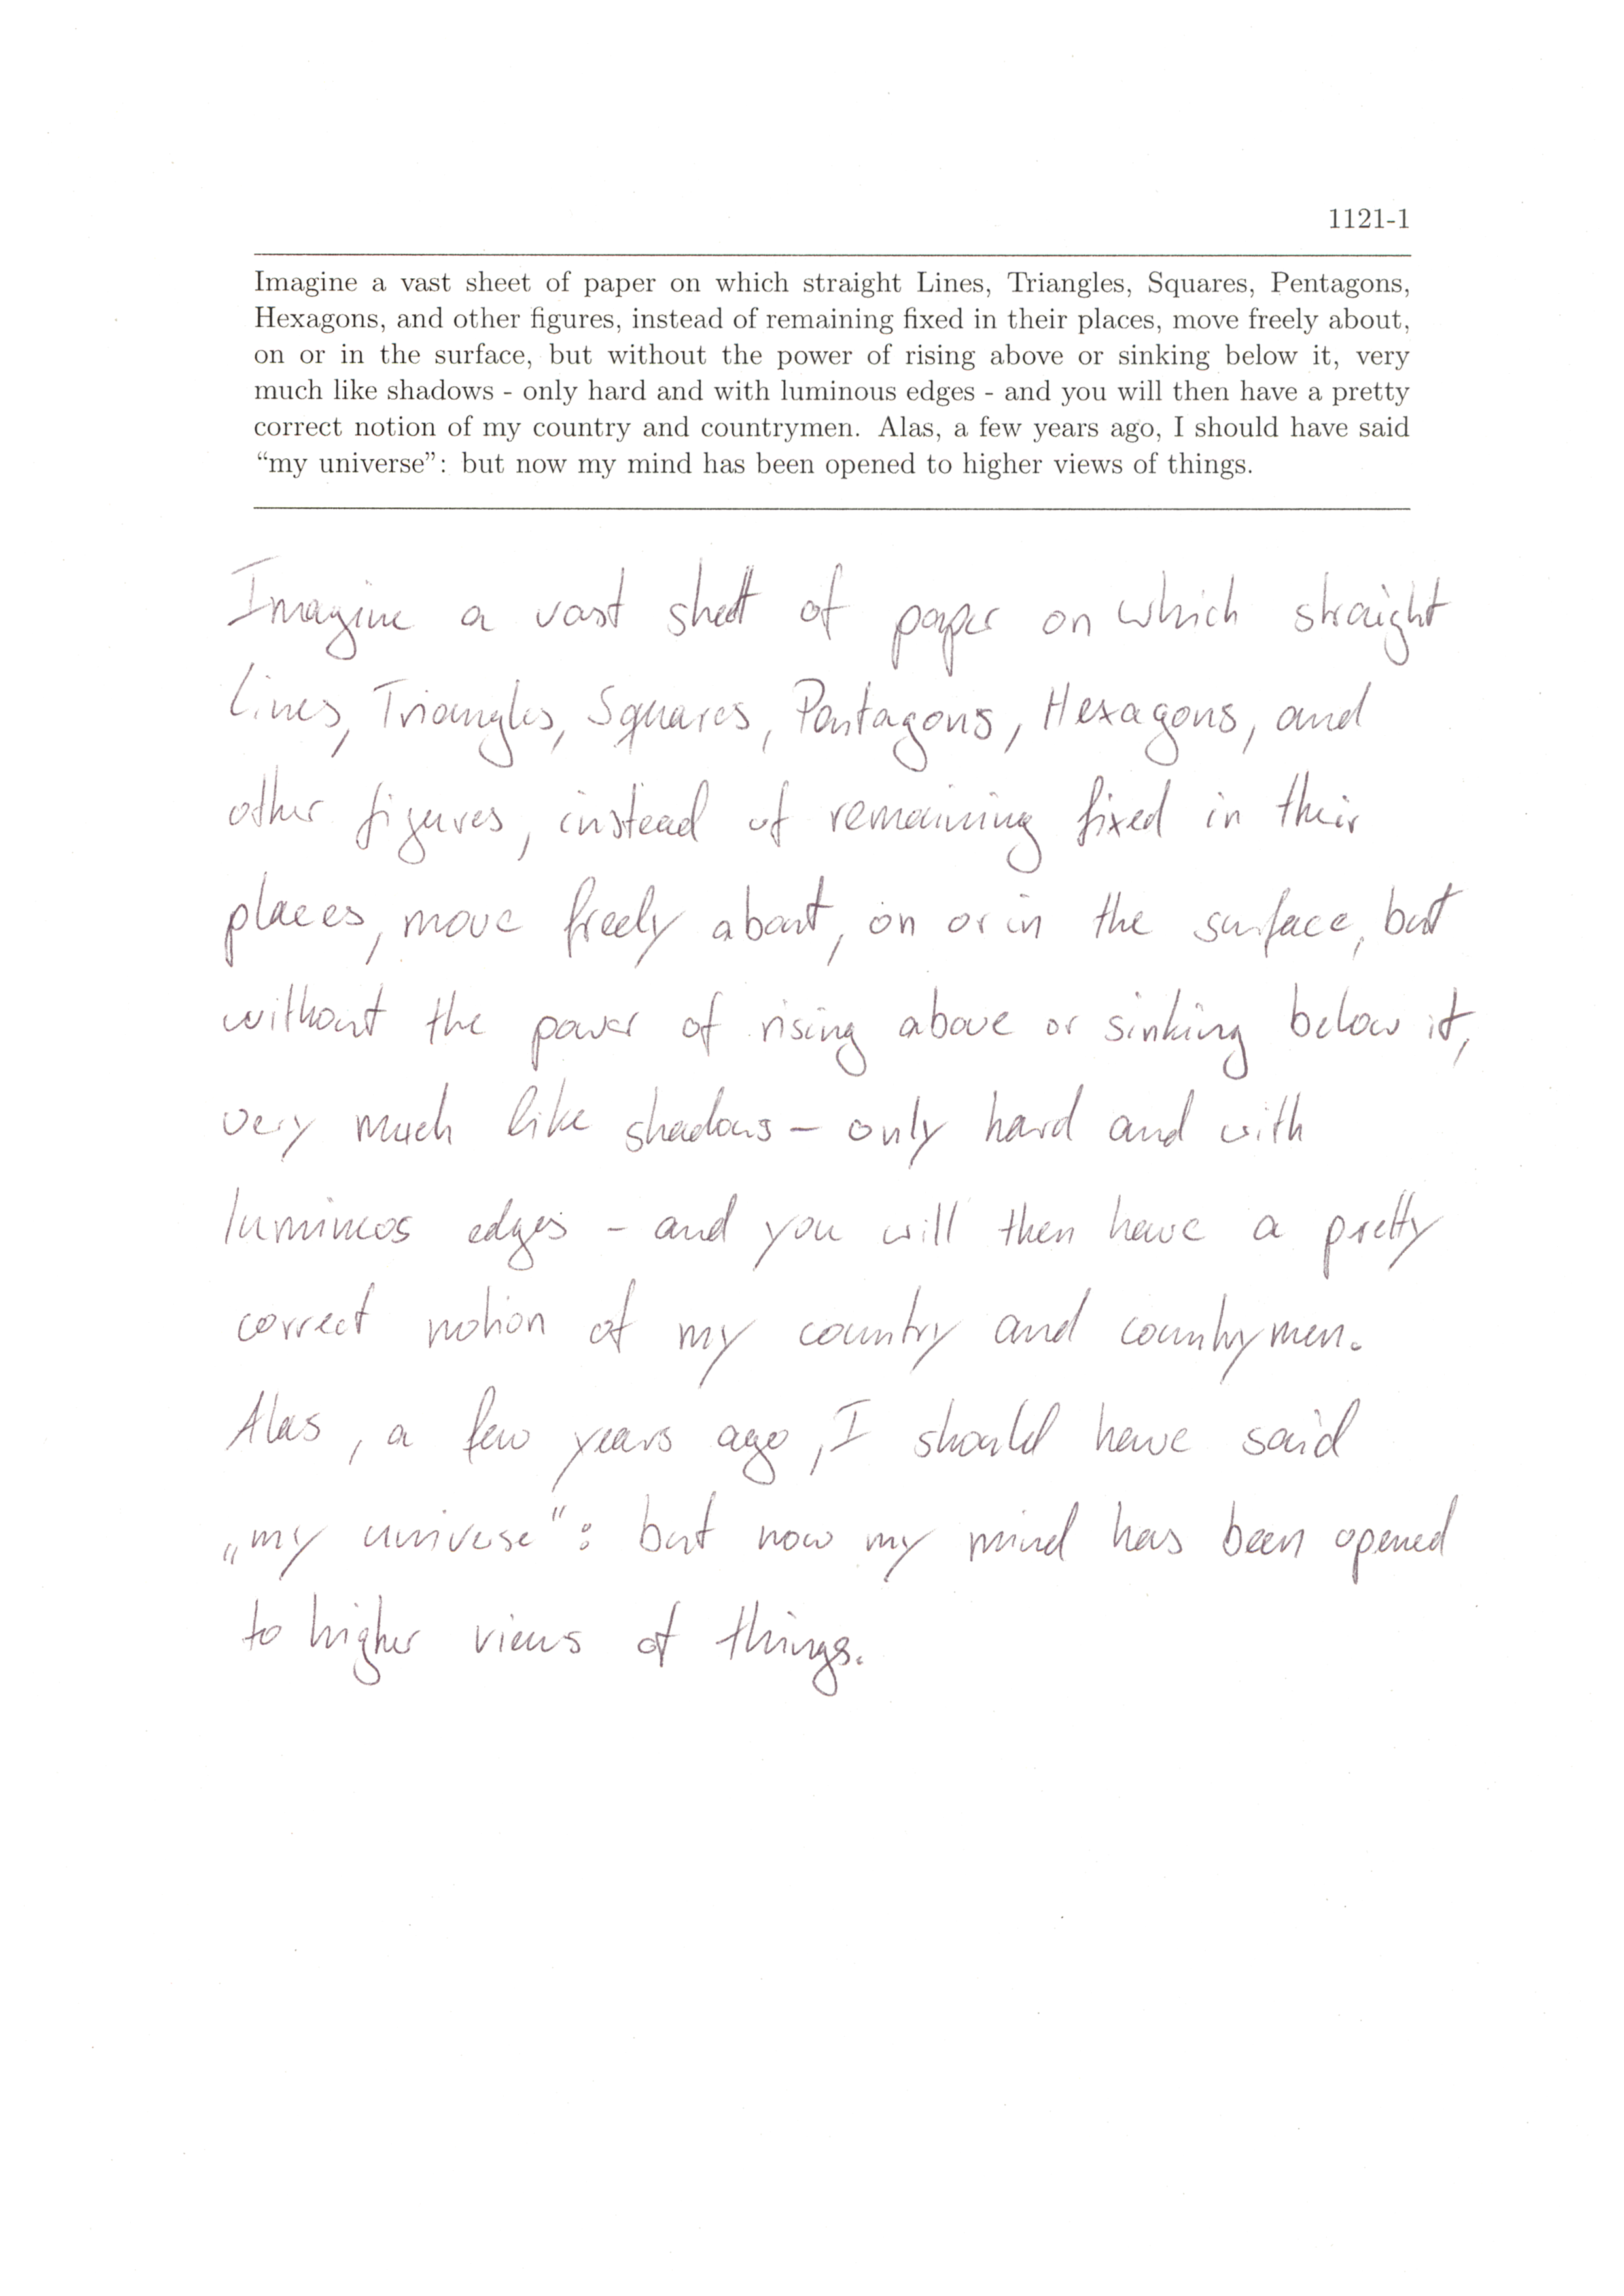 1121-1
Imagine a vast sheet of paper on which straight Lines, Triangles, Squares, Pentagons,
Hexagons, and other figures, instead of remaining fixed in their places, move freely about,
on or in the surface, but without the power of rising above or sinking below it, very
much like shadows - only hard and with luminous edges - and you will then have a pretty
correct notion of my country and countrymen. Alas, a few years ago, I should have said
“my universe”: but now my mind has been opened to higher views of things.
Imagine a vast sheet of paper on which straight
Lines, Triangles, Squares, Pantagons, Hexagons, and
other figures, instead of remaining fixed in their
places, move freely about, on or in the surface, but
without the power of rising above or sinking below it,
very much like shadows – only hard and with
luminos edges – and you will then have a pretty
correct notion of my country and countrymen.
Alas, a few years ago, I should have said
„my universe": but now my mind has been opened
to higher views of things.